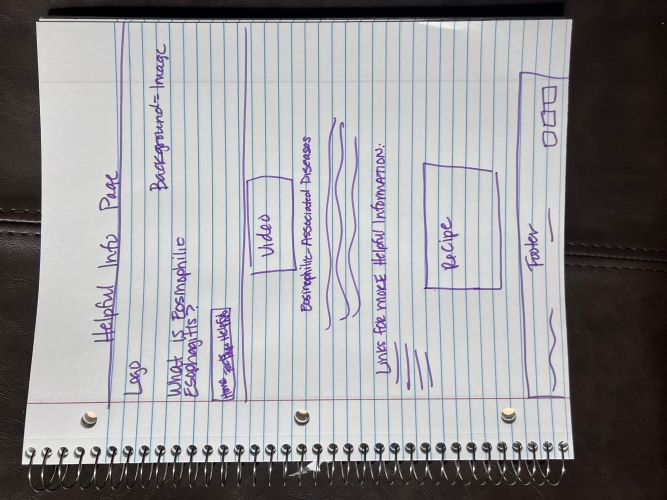 Helpful Info Page
Logo
Background = Image
What is Eosinophilic
Esophagitis?
Home Facts Helpful
Video
Eosinophilic-Associated Diseases
Links for more Helpful Information:
Recipe
Footer